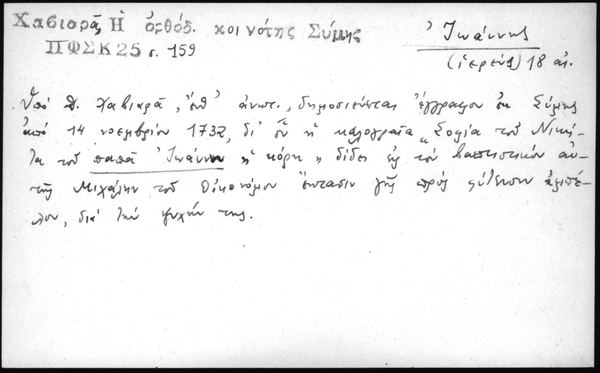 Χαβιαρᾶ, Ἡ ὀρθόδ. κοινότης Σύμης
ΠΦΣΚ 25 σ. 159
Ἰωάννης
(ἱερεύς) 18 αἰ.
Ὑπό Δ. Χαβιαρᾶ, ἔνθ' ἀνωτ., δημοσιεύεται ἔγγραφον ἐκ Σύμης
ἀπό 14 νοεμβρίου 1732, δι' οὗ ἡ καλογραῖα „Σοφία τοῦ Νική-
τα τοῦ παπᾶ Ἰωάννη ἡ κόρη" δίδει εἰς τόν βαπτιστικόν αὐ-
τῆς Μιχάλην τοῦ Οἰκονόμου ἔκτασιν γῆς πρός φύτευσιν ἀμπέ-
λου, διά τήν ψυχήν της.